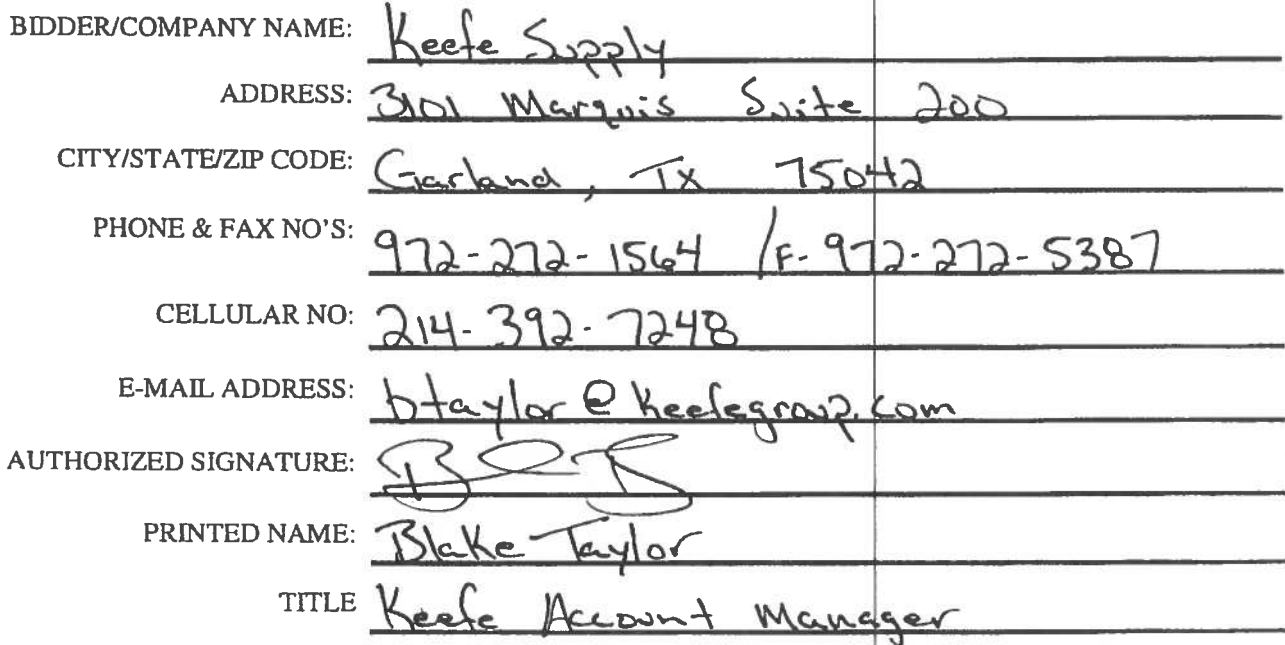 BIDDER/COMPANY NAME: Keefe Supply
ADDRESS: 3101 Marquis Suite 200
CITY/STATE/ZIP CODE: Garland, Tx 75042
PHONE & FAX NO'S: 972-272-1564 /F- 972-272-5387
CELLULAR NO: 214-392-7248
E-MAIL ADDRESS: btaylor@keefegroup.com
AUTHORIZED SIGNATURE:
PRINTED NAME: Blake Taylor
TITLE Keefe Account Manager